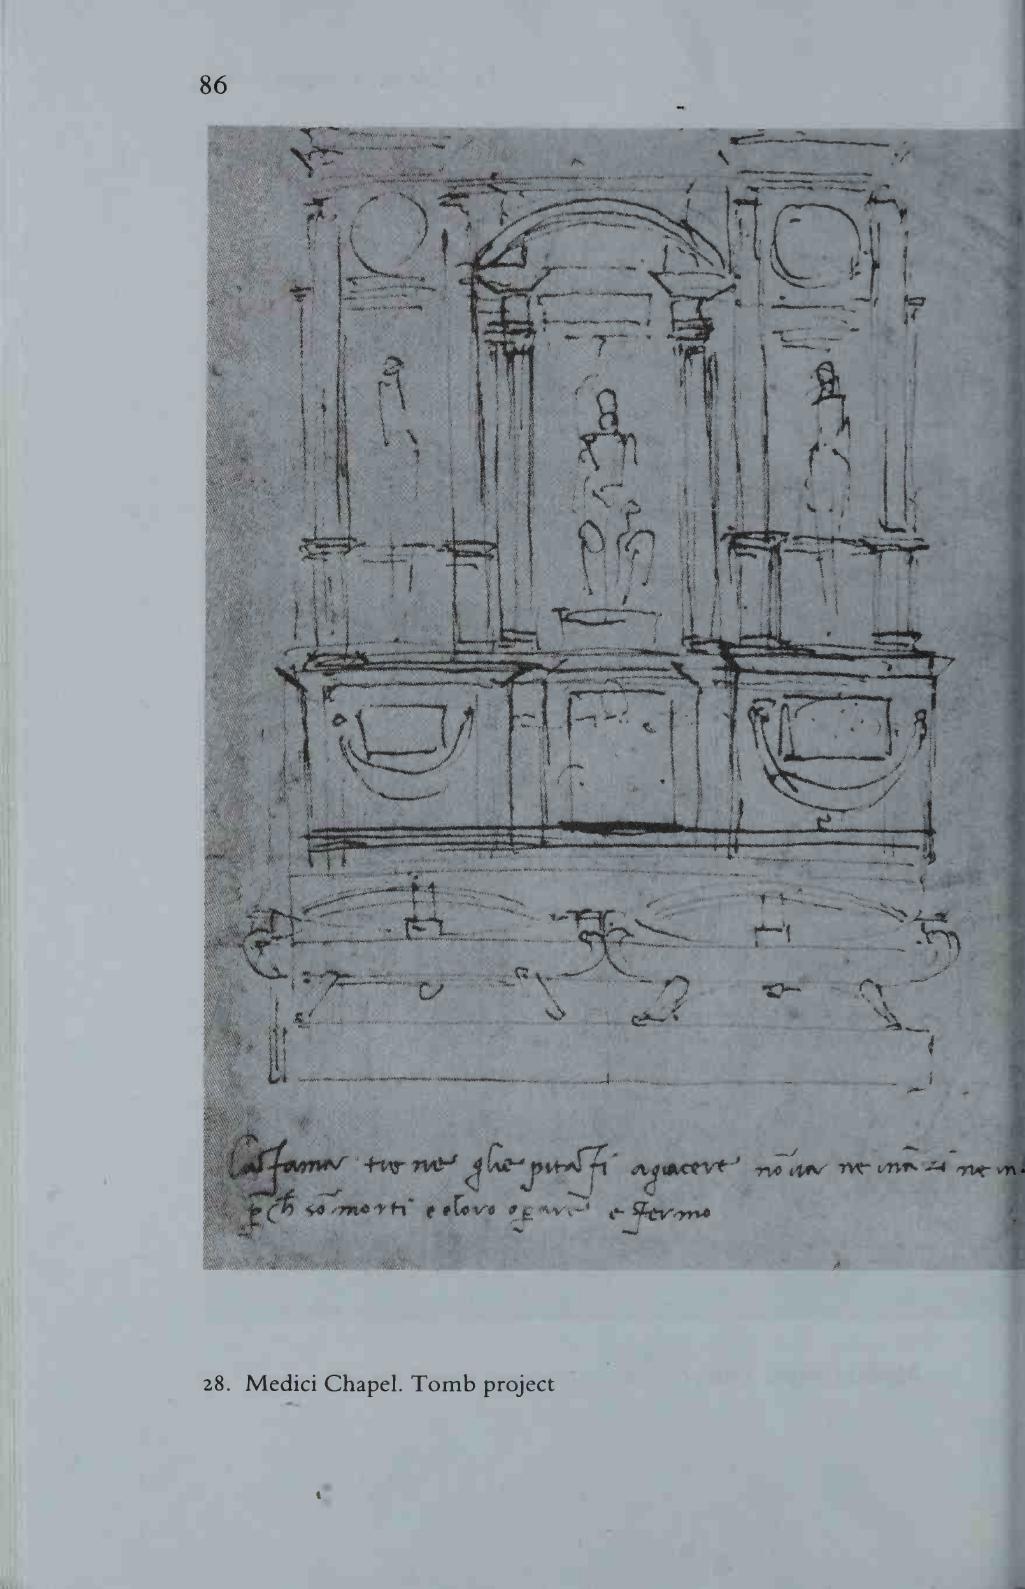 86
La fama tiene gli epitaffi a giacere nō va ne inā zi ne in
p(ch) sō morti e e loro operare e fermo
28. Medici Chapel. Tomb project